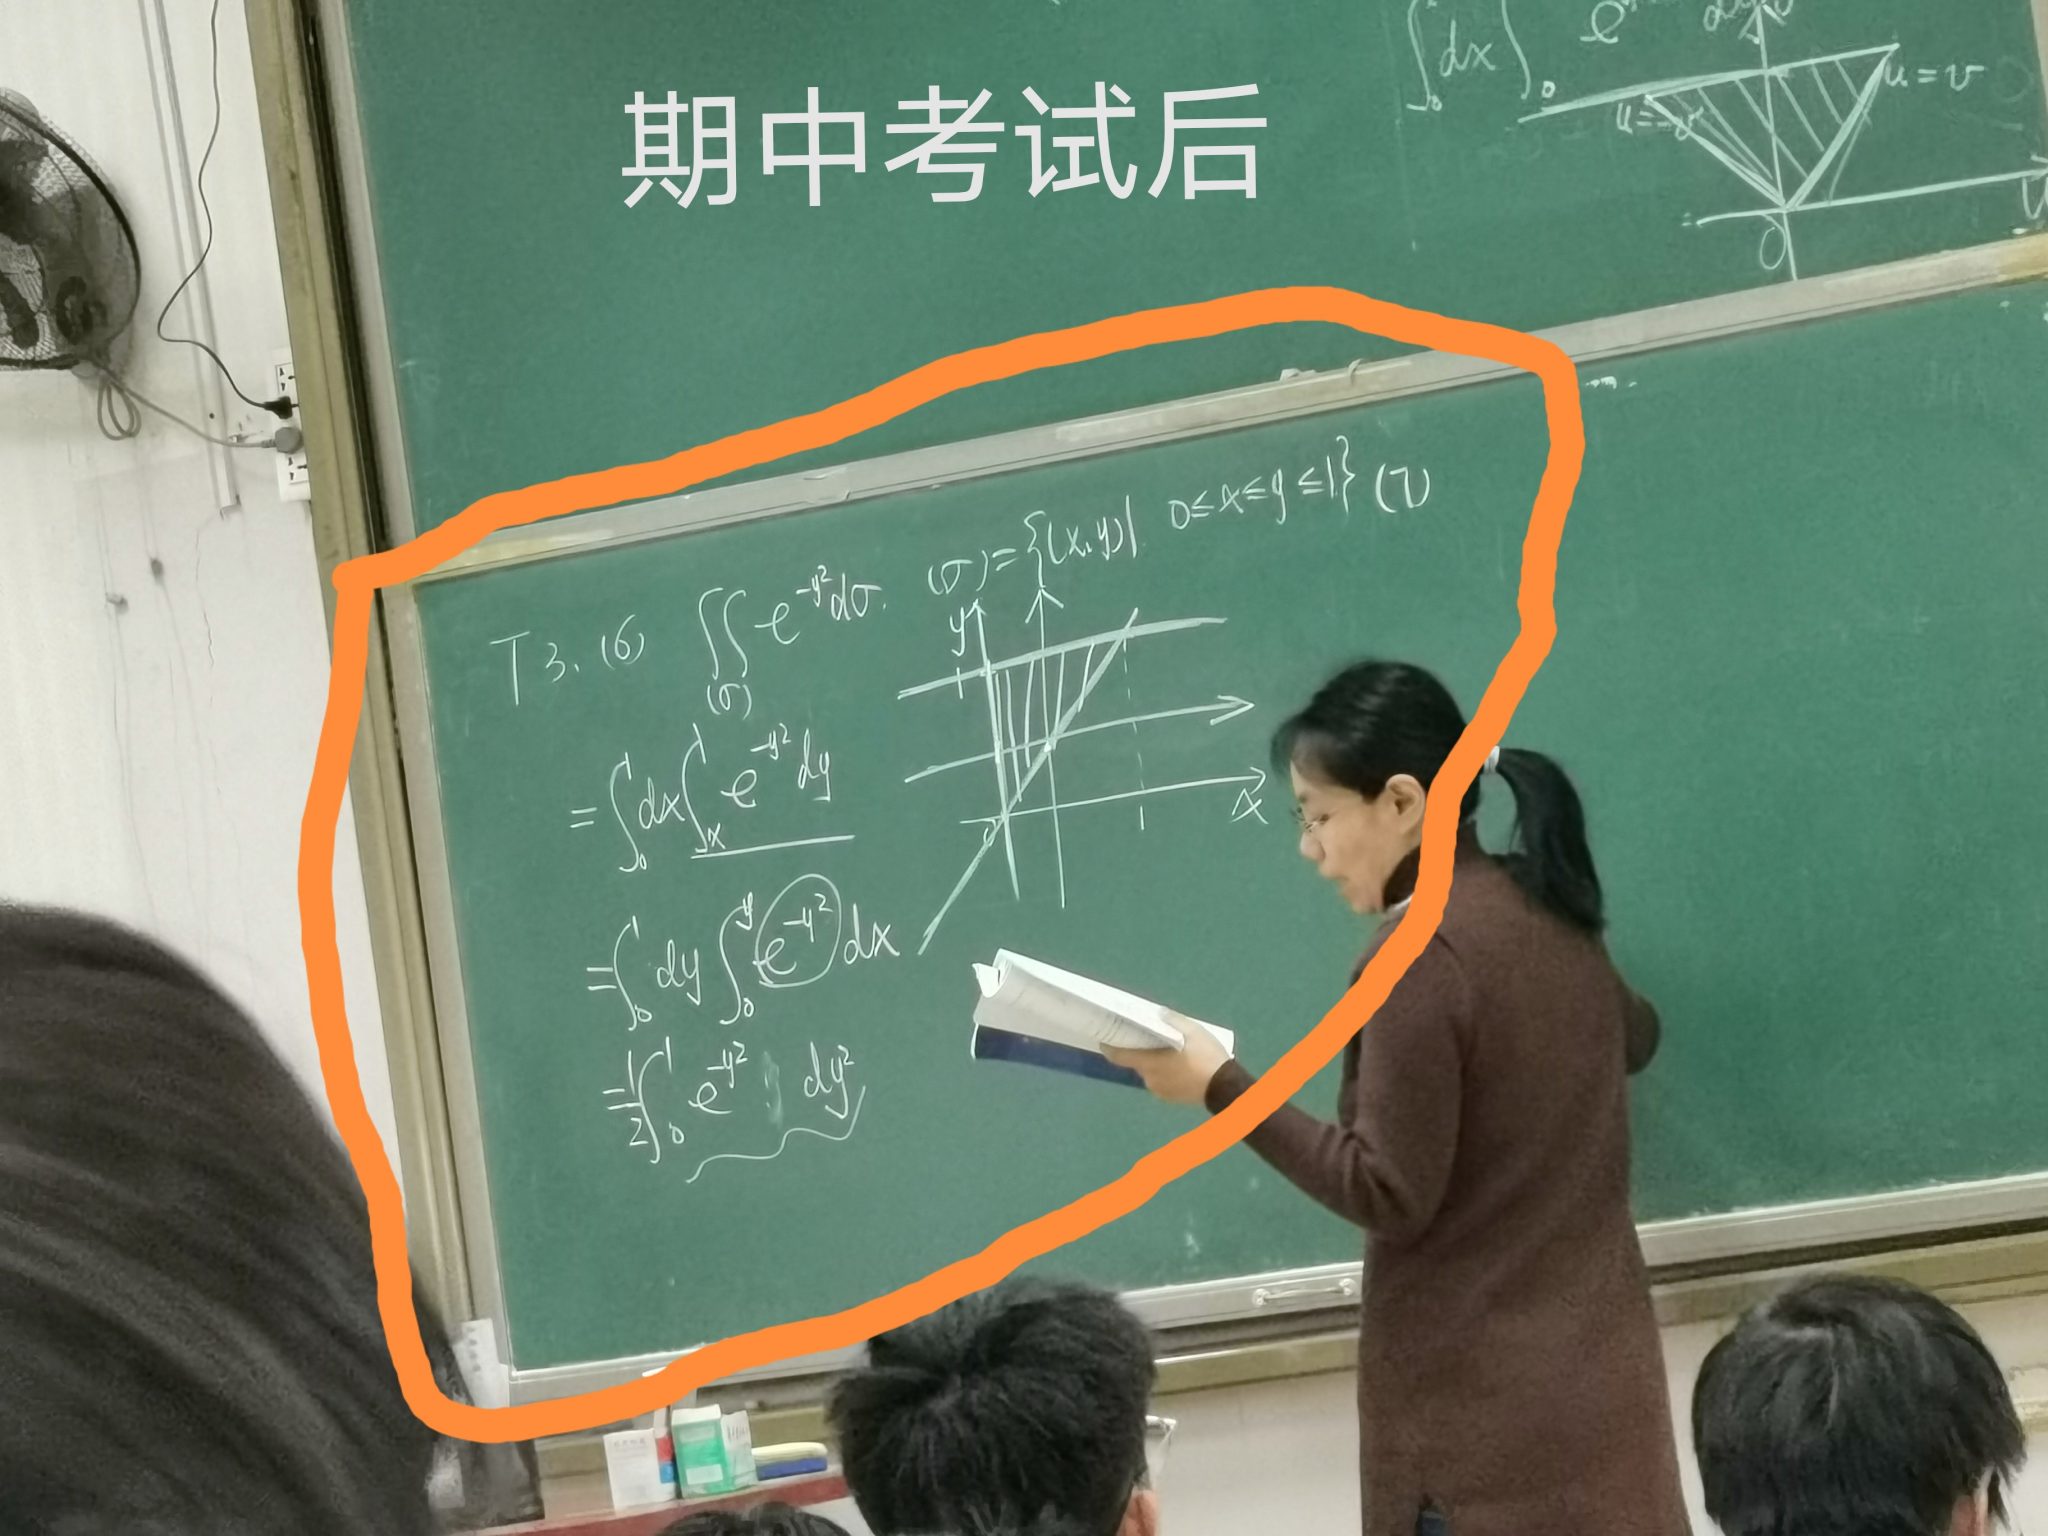 期中考试后
∫₀ dx ∫₀ e
u=-v
u=v
O
T3. (6) ∬₍σ₎ e^{-y²} dσ. (σ)={(x,y)| 0≤x≤y≤1} (7)
y
1
x
1
= ∫₀¹ dx ∫ₓ¹ e^{-y²} dy
= ∫₀¹ dy ∫₀^y e^{-y²} dx
= 1/2 ∫₀¹ e^{-y²} dy²